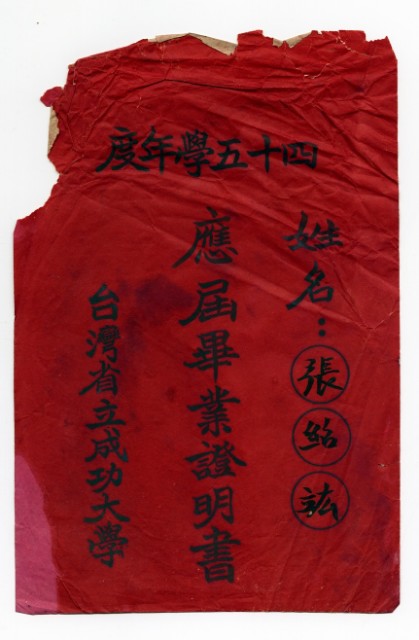 四十五學年度
姓名：張紹
應屆畢業證明書
台灣省立成功大學